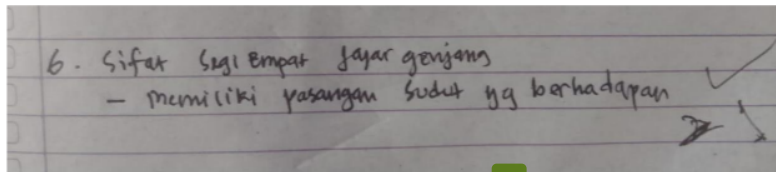 6. Sifat Segi Empat Jajar genjang
- memiliki pasangan sudut yg berhadapan